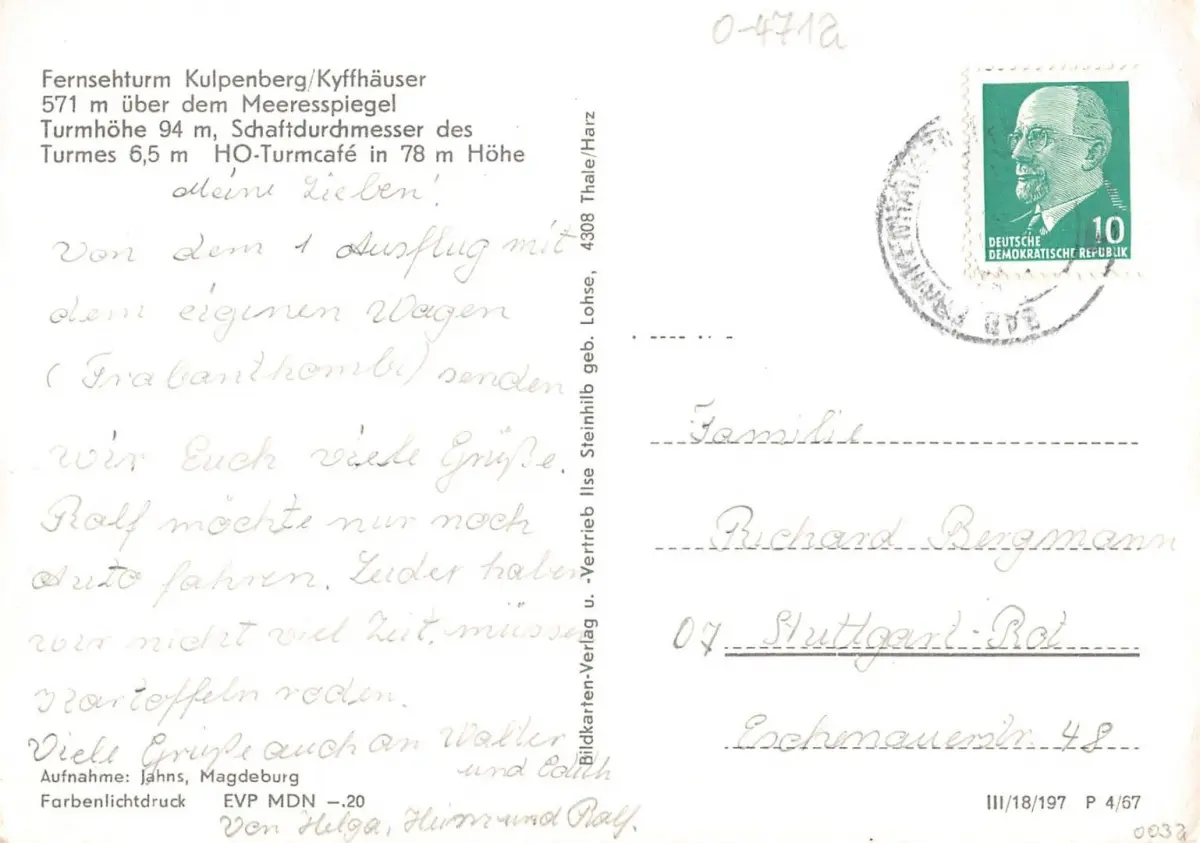 O-4712
Fernsehturm Kulpenberg/Kyffhäuser
571 m über dem Meeresspiegel
Turmhöhe 94 m, Schaftdurchmesser des
Turmes 6,5 m HO-Turmcafé in 78 m Höhe
Meine Lieben!
Von dem 1 Ausflug mit
dem eigenen Wagen
(Trabantkombi) senden
wir Euch viele Grüße.
Ralf möchte nur noch
Auto fahren. Leider haben
wir nicht viel Zeit, müssen
Kartoffeln roden.
Viele Grüße auch an Walter
und Edith
Von Helga, Heinz und Ralf.
Aufnahme: Jahns, Magdeburg
Farbenlichtdruck EVP MDN –.20
Bildkarten-Verlag u. -Vertrieb Ilse Steinhilb geb. Lohse, 4308 Thale/Harz
10
DEUTSCHE
DEMOKRATISCHE REPUBLIK
BAD FRANKENHAUSEN
Familie
Richard Bergmann
07 Stuttgart-Rot
Eschenauerstr. 48
III/18/197 P 4/67
0032